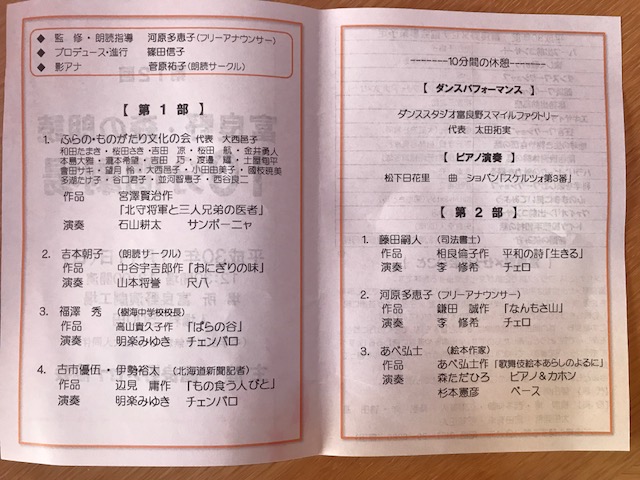 ◆ 監修・朗読指導 河原多恵子(フリーアナウンサー)
◆ プロデュース・進行 篠田信子
◆ 影アナ 菅原祐子(朗読サークル)
【 第1部 】
1. ふらの・ものがたり文化の会 代表 大西邑子
和田たまき・桜田さき・吉田 涼・桜田 航・金井勇人
本島大雅・瀧本希望・吉田 巧・渡邊 耀・土屋旬平
會田サキ・望月 怜・大西邑子・小田由美子・國枝暁美
多湖たけ子・谷口君子・並河智恵子・西谷良二
作品 宮澤賢治作
「北守将軍と三人兄弟の医者」
演奏 石山耕太 サンポーニャ
2. 吉本朝子 (朗読サークル)
作品 中谷宇吉郎作「おにぎりの味」
演奏 山本将誉 尺八
3. 福澤 秀 (樹海中学校校長)
作品 高山貴久子作「ばらの谷」
演奏 明楽みゆき チェンバロ
4. 古市優伍・伊勢裕太 (北海道新聞記者)
作品 辺見 庸作「もの食う人びと」
演奏 明楽みゆき チェンバロ
-------10分間の休憩-------
【 ダンスパフォーマンス 】
ダンススタジオ富良野スマイルファクトリー
代表 太田拓実
【 ピアノ演奏 】
松下日花里 曲 ショパン「スケルツォ第3番」
【 第2部 】
1. 藤田嗣人 (司法書士)
作品 相良倫子作 平和の詩「生きる」
演奏 李 修希 チェロ
2. 河原多恵子(フリーアナウンサー)
作品 鎌田 誠作 「なんもさ山」
演奏 李 修希 チェロ
3. あべ弘士 (絵本作家)
作品 あべ弘士作「歌舞伎絵本あらしのよるに」
演奏 森ただひろ ピアノ&カホン
杉本憲彦 ベース